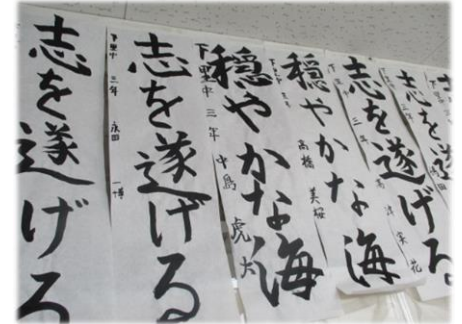 志を遂げる
下里中 三年 永田 一博
志を遂げる
下里中 三年 中島 虎大
穏やかな海
高橋 美桜
穏やかな海
三年
実花
志を遂げる
志を遂げる